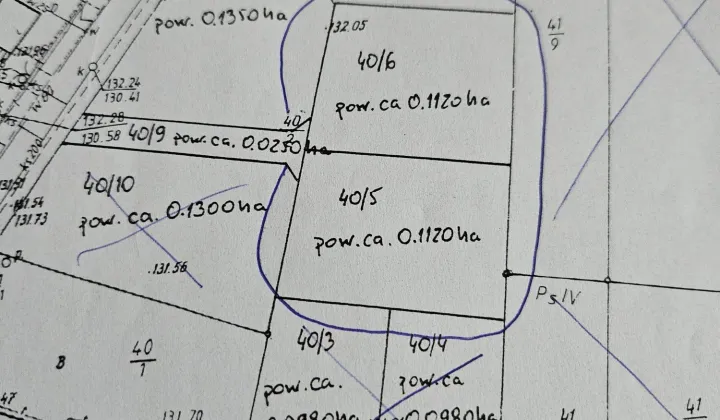 pow. 0.1350ha
132.05
41
9
40/6
pow. ca 0.1120ha
K
132.24
130.41
132.28
130.58
40/9 pow. ca. 0.0250ha
40
2
40/10
pow. ca. 0.1300ha
40/5
pow. ca. 0.1120ha
131.54
131.73
.131.56
PsIV
40/3
40/4
B
40
1
pow. ca.
pow. ca
0.0980ha
47
131.70
41
41